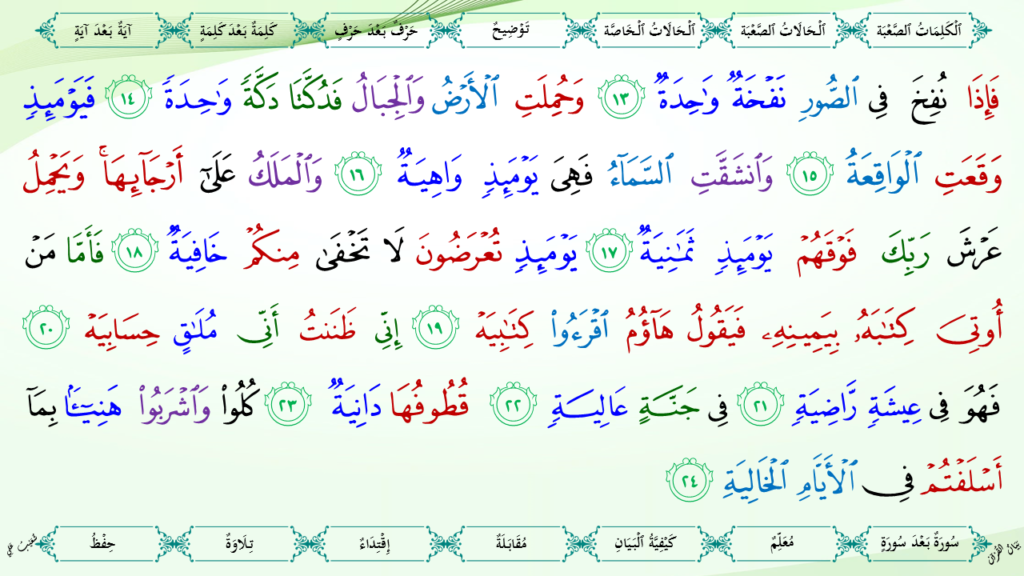 اَلْكَلِمَاتُ الصَّعْبَة اَلْحَالَاتُ الصَّعْبَة اَلْحَالَاتُ الْخَاصَّة تَوْضِيحٌ حَرْفٌ بَعْدَ حَرْفٍ كَلِمَةٌ بَعْدَ كَلِمَةٍ آيَةٌ بَعْدَ آيَةٍ
فَإِذَا نُفِخَ فِى ٱلصُّورِ نَفْخَةٌ وَٰحِدَةٌ ١٣ وَحُمِلَتِ ٱلْأَرْضُ وَٱلْجِبَالُ فَدُكَّتَا دَكَّةً وَٰحِدَةً ١٤ فَيَوْمَئِذٍ
وَقَعَتِ ٱلْوَاقِعَةُ ١٥ وَٱنشَقَّتِ ٱلسَّمَآءُ فَهِىَ يَوْمَئِذٍ وَاهِيَةٌ ١٦ وَٱلْمَلَكُ عَلَىٰٓ أَرْجَآئِهَا ۚ وَيَحْمِلُ
عَرْشَ رَبِّكَ فَوْقَهُمْ يَوْمَئِذٍ ثَمَٰنِيَةٌ ١٧ يَوْمَئِذٍ تُعْرَضُونَ لَا تَخْفَىٰ مِنكُمْ خَافِيَةٌ ١٨ فَأَمَّا مَنْ
أُوتِىَ كِتَٰبَهُۥ بِيَمِينِهِۦ فَيَقُولُ هَآؤُمُ ٱقْرَءُوا۟ كِتَٰبِيَهْ ١٩ إِنِّى ظَنَنتُ أَنِّى مُلَٰقٍ حِسَابِيَهْ ٢٠
فَهُوَ فِى عِيشَةٍ رَّاضِيَةٍ ٢١ فِى جَنَّةٍ عَالِيَةٍ ٢٢ قُطُوفُهَا دَانِيَةٌ ٢٣ كُلُوا۟ وَٱشْرَبُوا۟ هَنِيٓـًٔۢا بِمَآ
أَسْلَفْتُمْ فِى ٱلْأَيَّامِ ٱلْخَالِيَةِ ٢٤
سُورَةٌ بَعْدَ سُورَةٍ مُعَلِّمٌ كَيْفِيَّةُ الْبَيَانِ مُقَابَلَةٌ إِقْتِدَاءٌ تِلَاوَةٌ حِفْظُ